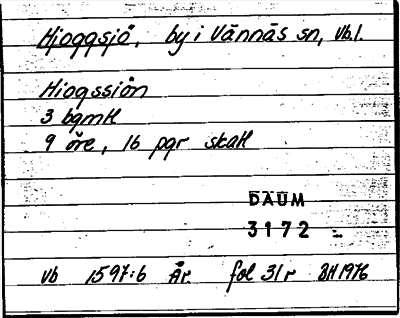 Hjoggsjö, by i Vännäs sn, Vb.l.
Hiogssiön
3 bgmtl
9 öre, 16 pgr skatt
DAUM
3172
Vb 1597:6 År. fol 31r BH 1976